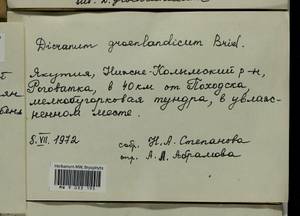 Dicranum groenlandicum Brid.
Якутия, Нижне-Колымский р-н,
Роговатка, в 40 км от Походска,
мелкобугорковая тундра, в увлаж-
ненном месте.
5.VII.1972 собр. Н.А. Степанова
опр. А.Л. Абрамова
Herbarium MW, Bryophyta